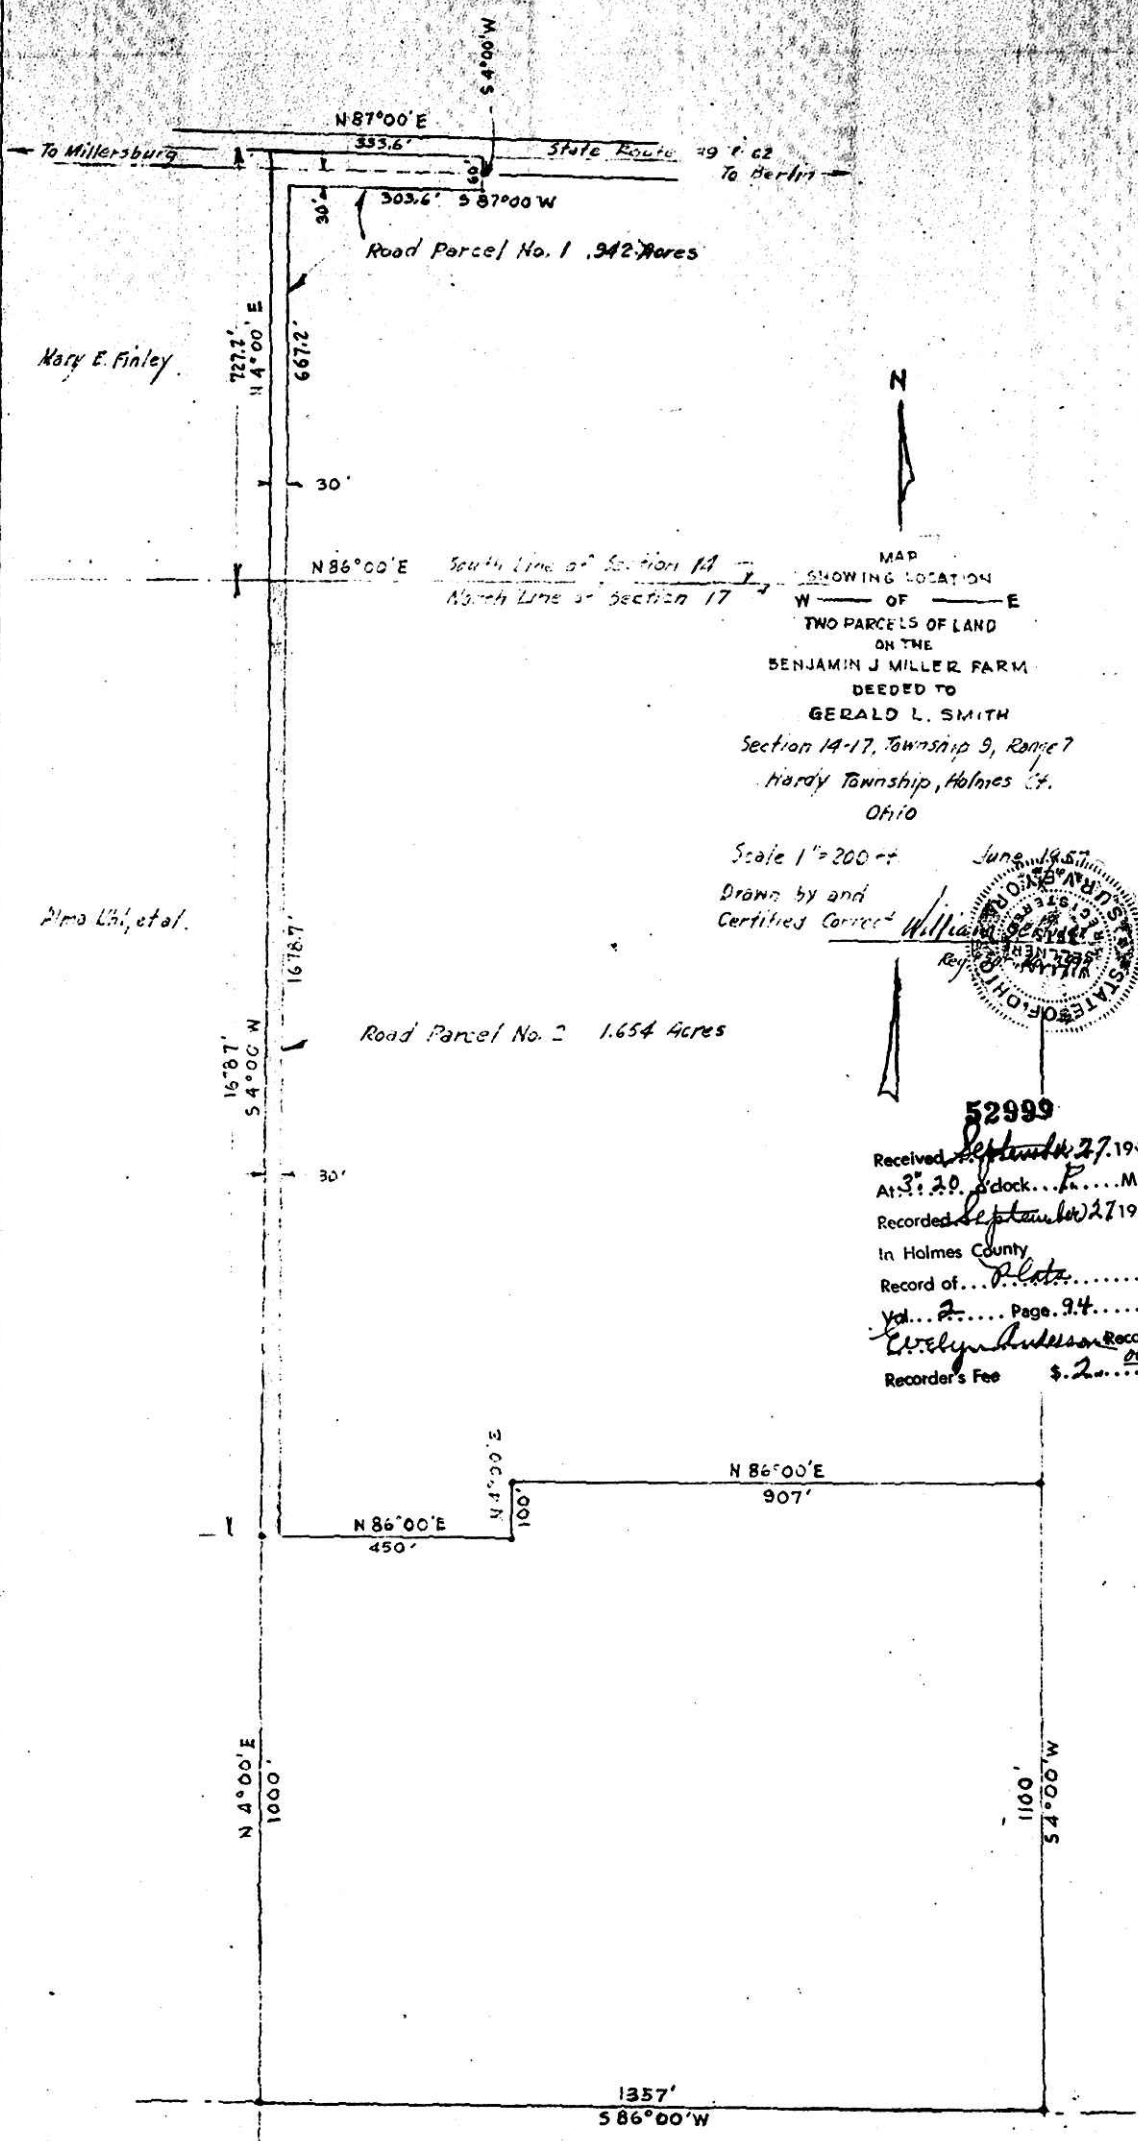 S 4°00'W
N 87°00'E
333.6'
To Millersburg
State Route 39 & 62
To Berlin
60'
30'
303.6' S 87°00 W
Road Parcel No. 1 .942 Acres
727.2'
N 4°00' E
667.2'
Mary E. Finley
30'
N 86°00'E
South Line of Section 14
North Line of Section 17
N
MAP
SHOWING LOCATION
W OF E
TWO PARCELS OF LAND
ON THE
BENJAMIN J MILLER FARM
DEEDED TO
GERALD L. SMITH
Section 14-17, Township 9, Range 7
Hardy Township, Holmes Ct.
Ohio
Scale 1"=200 ft
June
Drawn by and
Certified Correct William
Reg.
STATE OF OHIO
REGISTERED
SURVEYOR
Alma et al.
1678.7'
Road Parcel No. 2 1.654 Acres
1678.7'
S 4°00' W
30'
52999
Received September 27, 19
At 3:20 o'clock P. M
Recorded September 27 19
In Holmes County
Record of Plats
Vol. 2 Page 94
Evelyn Anderson Reco
Recorder's Fee $.2
N 4°00'E
100'
N 86°00'E
907'
N 86°00'E
450'
N 4°00'E
1000'
1100'
S 4°00'W
1357'
S 86°00'W